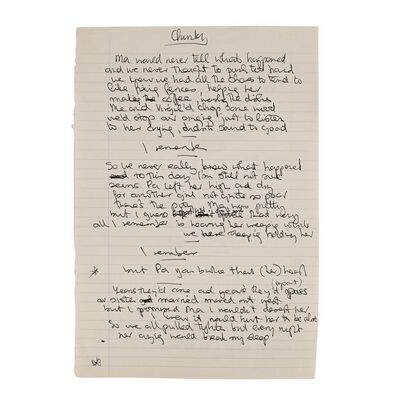 Chunky
Ma would never tell what happened
and we never thought to push too hard
we knew we had all the chores to tend to
like fixing fences, helping her
make the coffee, wash the dishes
Me and Virgil'd chop some wood
we'd stop our singing just to listen
to her crying, didn't sound to good
I remember
So we never really knew what happened
to this day I'm still not sure
seems Pa left her high and dry
for another girl not quite so poor
there's the pity Ma now pretty
but I guess had very
all I remember is hearing her weeping while
we were sleeping holding her
I rember
* but Pa you broke then (her) heart
Years they'd come and years they'd (apart)
our sister married moved out west
but I promised Ma I wouldn't desert her
knew it would hurt her to be alone
So we all pulled tighter but every night
her crying would break my sleep